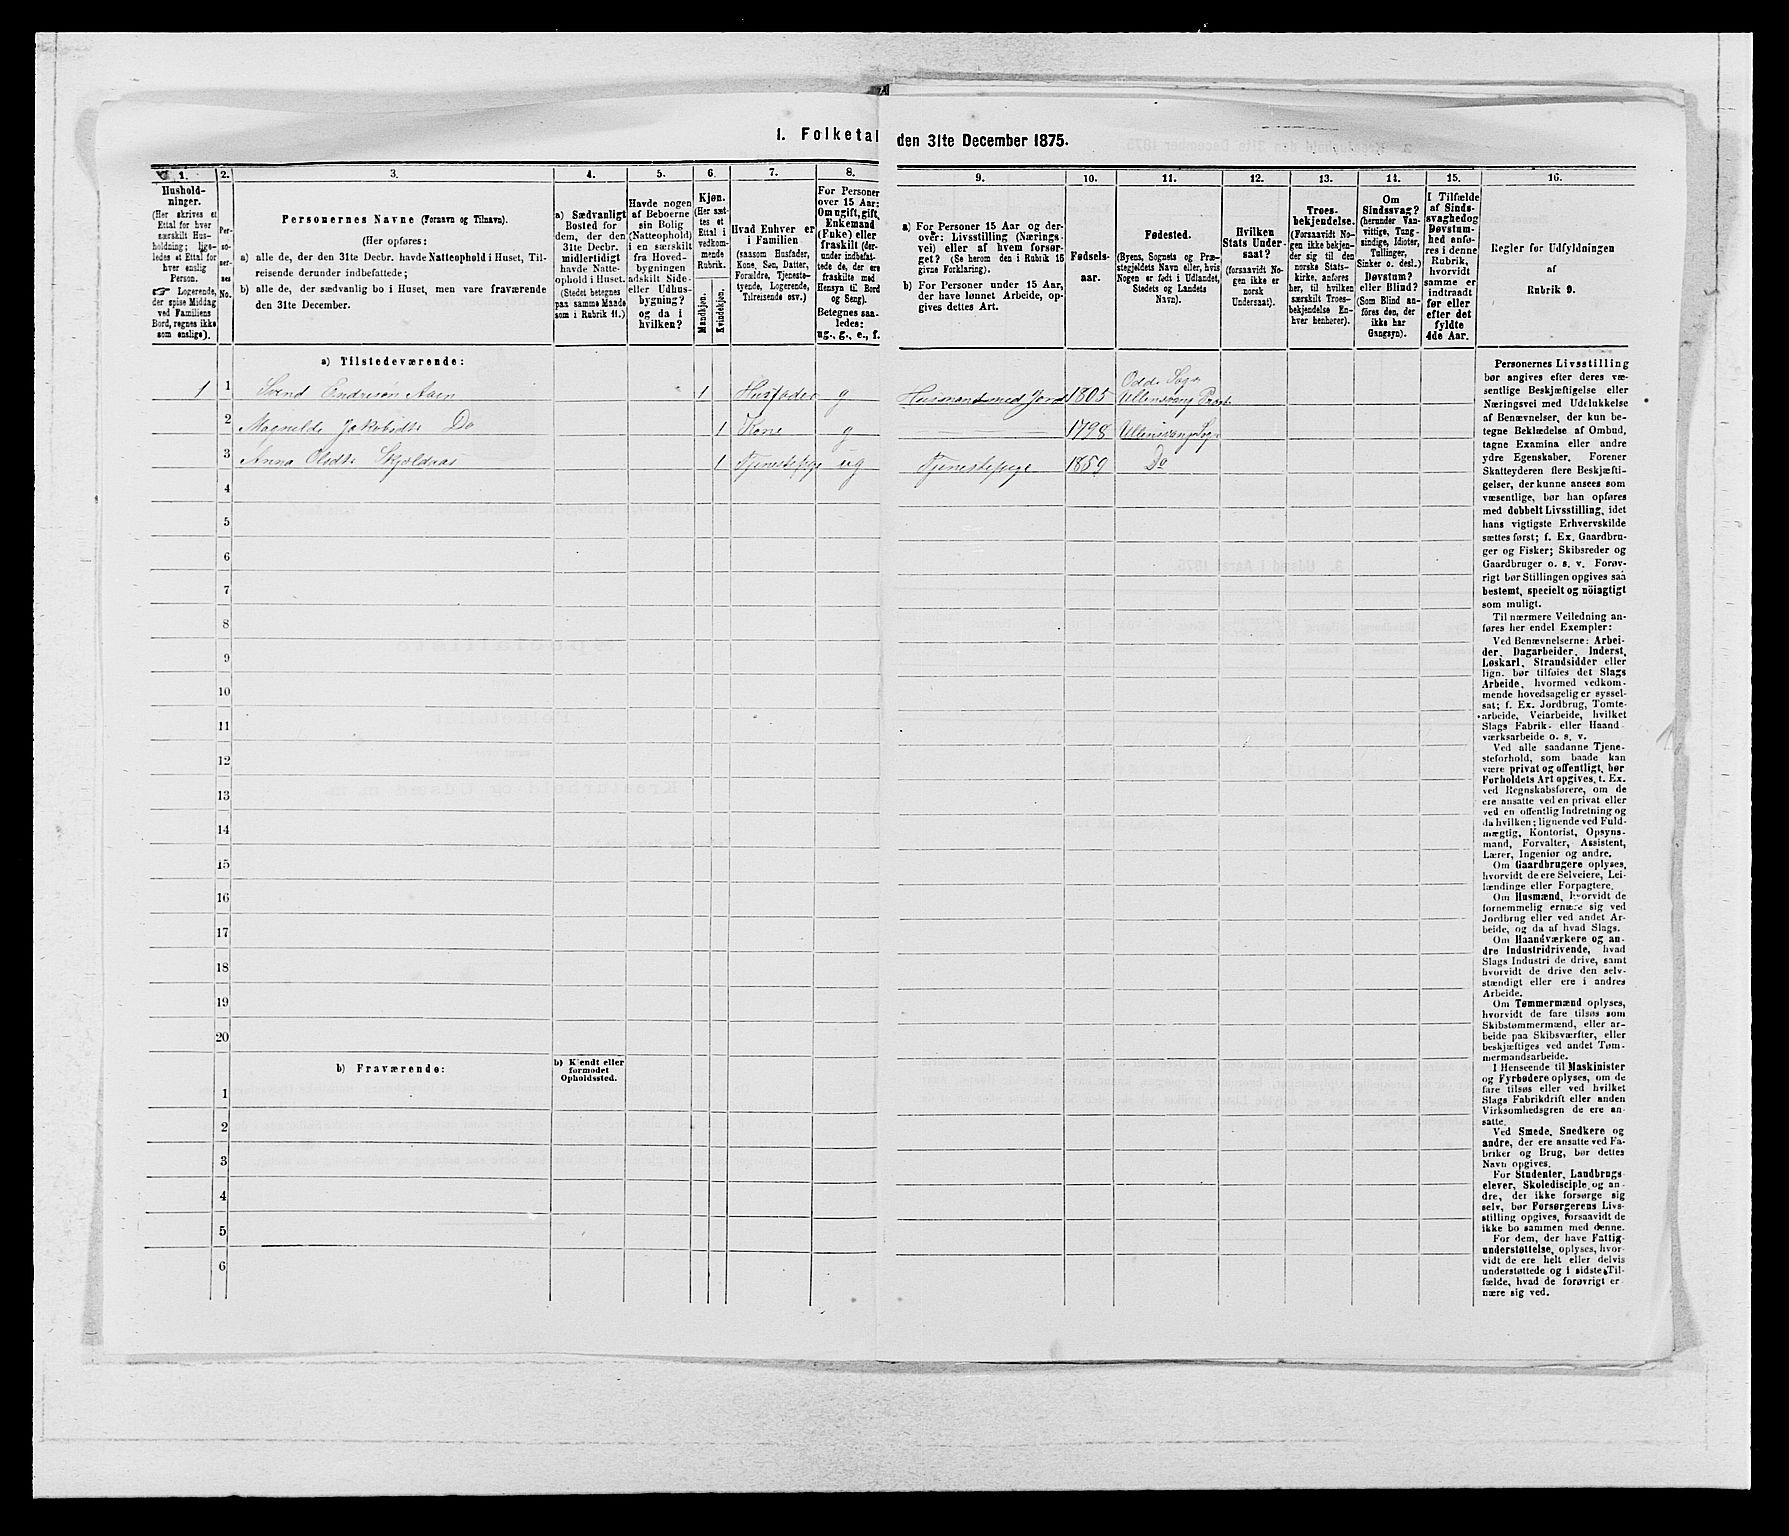 1. Folketal
den 31te December 1875.
1.
Hushold-
ninger.
(Her skrives et
Ettal for hver
særskilt Hus-
holdning; lige-
ledes et Ettal for
hver enslig
Person.
☞ Logerende,
der spise Middag
ved Familiens
Bord, regnes ikke
som enslige).
2.
Per-
so-
ner-
nes
No.
3.
Personernes Navne (Fornavn og Tilnavn).
(Her opføres:
a) alle de, der den 31te Decbr. havde Natteophold i Huset, Til-
reisende derunder indbefattede;
b) alle de, der sædvanlig bo i Huset, men vare fraværende
den 31te December.
4.
a) Sædvanligt
Bosted for
dem, der den
31te Decbr.
midlertidigt
havde Natte-
ophold i Huset.
(Stedet betegnes
paa samme Maade
som i Rubrik 11.)
5.
Havde nogen
af Beboerne
sin Bolig
(Natteophold)
i en særskilt
fra Hoved-
bygningen
adskilt Side-
eller Udhus-
bygning?
og da i
hvilken?
6.
Kjøn.
(Her sæt-
tes et
Ettal i
vedkom-
mende
Rubrik.
Mandkjøn.
Kvindekjøn.
7.
Hvad Enhver er
i Familien
(saasom Husfader,
Kone, Søn, Datter,
Forældre, Tjeneste-
tyende, Logerende,
Tilreisende osv.)
8.
For Personer
over 15 Aar:
Om ugift, gift,
Enkemand
(Enke) eller
fraskilt (der-
under indbefat-
tede de, der ere
fraskilte med
Hensyn til Bord
og Seng).
Betegnes saa-
ledes:
ug., g., e., f.
9.
a) For Personer 15 Aar og der-
over: Livsstilling (Nærings-
vei) eller af hvem forsør-
get? (Se herom den i Rubrik 16
givne Forklaring).
b) For Personer under 15 Aar,
der have lønnet Arbeide, op-
gives dettes Art.
10.
Fødsels-
aar.
11.
Fødested.
(Byens, Sognets og Præ-
stegjeldets Navn eller, hvis
Nogen er født i Udlandet,
Stedets og Landets
Navn).
12.
Hvilken
Stats Under-
saat?
(forsaavidt No-
gen ikke er
norsk
Undersaat).
13.
Troes-
bekjendelse.
(Forsaavidt No-
gen ikke bekjen-
der sig til den
norske Stats-
kirke, anføres
her, til hvilken
særskilt Troes-
bekjendelse En-
hver henhører).
14.
Om
Sindssvag?
(herunder Van-
vittige, Tung-
sindige, Idioter,
Tullinger,
Sinker o. desl.)
Døvstum?
eller Blind?
(Som Blind an-
føres den, der
ikke har
Gangsyn).
15.
I Tilfælde
af Sinds-
svaghed og
Døvstum-
hed anfø-
res i denne
Rubrik,
hvorvidt
samme er
indtraadt
før eller
efter det
fyldte
4de Aar.
16.
Regler for Udfyldningen
af
Rubrik 9.
a) Tilstedeværende:
1 1 Svend Endresøn Aaen 1 Husfader g Husmand med Jord 1805 Odde Sogn
Ullensvang Præst.
2 Magnilde Jakobsdtr Do 1 Kone g 1798 Ullensvang Sogn
3 Anna Olsdtr Skjeldaas 1 Tjenestepige ug Tjenestepige 1859 Do
4
5
6
7
8
9
10
11
12
13
14
15
16
17
18
19
20
b) Fraværende:
b) Kjendt eller
formodet
Opholdssted.
1
2
3
4
5
6
Personernes Livsstilling
bør angives efter deres væ-
sentlige Beskjæftigelse eller
Næringsvei med Udelukkelse
af Benævnelser, der kun be-
tegne Beklædelse af Ombud,
tagne Examina eller andre
ydre Egenskaber. Forener
Skatteyderen flere Beskjæfti-
gelser, der kunne ansees som
væsentlige, bør han opføres
med dobbelt Livsstilling, idet
hans vigtigste Erhvervskilde
sættes først; f. Ex. Gaardbru-
ger og Fisker; Skibsreder og
Gaardbruger o. s. v. Forøv-
rigt bør Stillingen opgives saa
bestemt, specielt og nöiagtigt
som muligt.
Til nærmere Veiledning an-
føres her endel Exempler:
Ved Benævnelserne: Arbei-
der, Dagarbeider, Inderst,
Løskarl, Strandsidder eller
lign. bør tilføies det Slags
Arbeide, hvormed vedkom-
mende hovedsagelig er syssel-
sat; f. Ex. Jordbrug, Tomte-
arbeide, Veiarbeide, hvilket
Slags Fabrik- eller Haand
værksarbeide o. s. v.
Ved alle saadanne Tjene-
steforhold, som baade kan
være privat og offentligt, bør
Forholdets Art opgives, t. Ex.
ved Regnskabsførere, om de
ere ansatte ved en privat eller
ved en offentlig Indretning og
da hvilken; lignende ved Fuld-
mægtig, Kontorist, Opsyns-
mand, Forvalter, Assistent,
Lærer, Ingeniør og andre.
Om Gaardbrugere oplyses,
hvorvidt de ere Selveiere, Lei-
lændinge eller Forpagtere.
Om Husmænd, hvorvidt de
fornemmelig ernære sig ved
Jordbrug eller ved andet Ar-
beide, og da af hvad Slags.
Om Haandværkere og an-
dre Industridrivende, hvad
Slags Industri de drive, samt
hvorvidt de drive den selv-
stændigt eller ere i andres
Arbeide.
Om Tømmermænd oplyses,
hvorvidt de fare tilsøs som
Skibstømmermænd, eller ar-
beide paa Skibsværfter, eller
beskjæftiges ved andet Tøm-
mermandsarbeide.
I Henseende til Maskinister
og Fyrbødere oplyses, om de
fare tilsøs eller ved hvilket
Slags Fabrikdrift eller anden
Virksomhedsgren de ere an-
satte.
Ved Smede, Snedkere og
andre, der ere ansatte ved Fa-
briker og Brug, bør dettes
Navn opgives.
For Studenter, Landbrugs
elever, Skoledisciple og an-
dre, der ikke forsørge sig
selv, bør Forsørgerens Livs-
stilling opgives, forsaavidt de
ikke bo sammen med denne.
For dem, der have Fattig-
understøttelse, oplyses, hvor-
vidt de ere helt eller delvis
understøttede og i sidste Til-
fælde, hvad de forøvrigt er
nære sig ved.